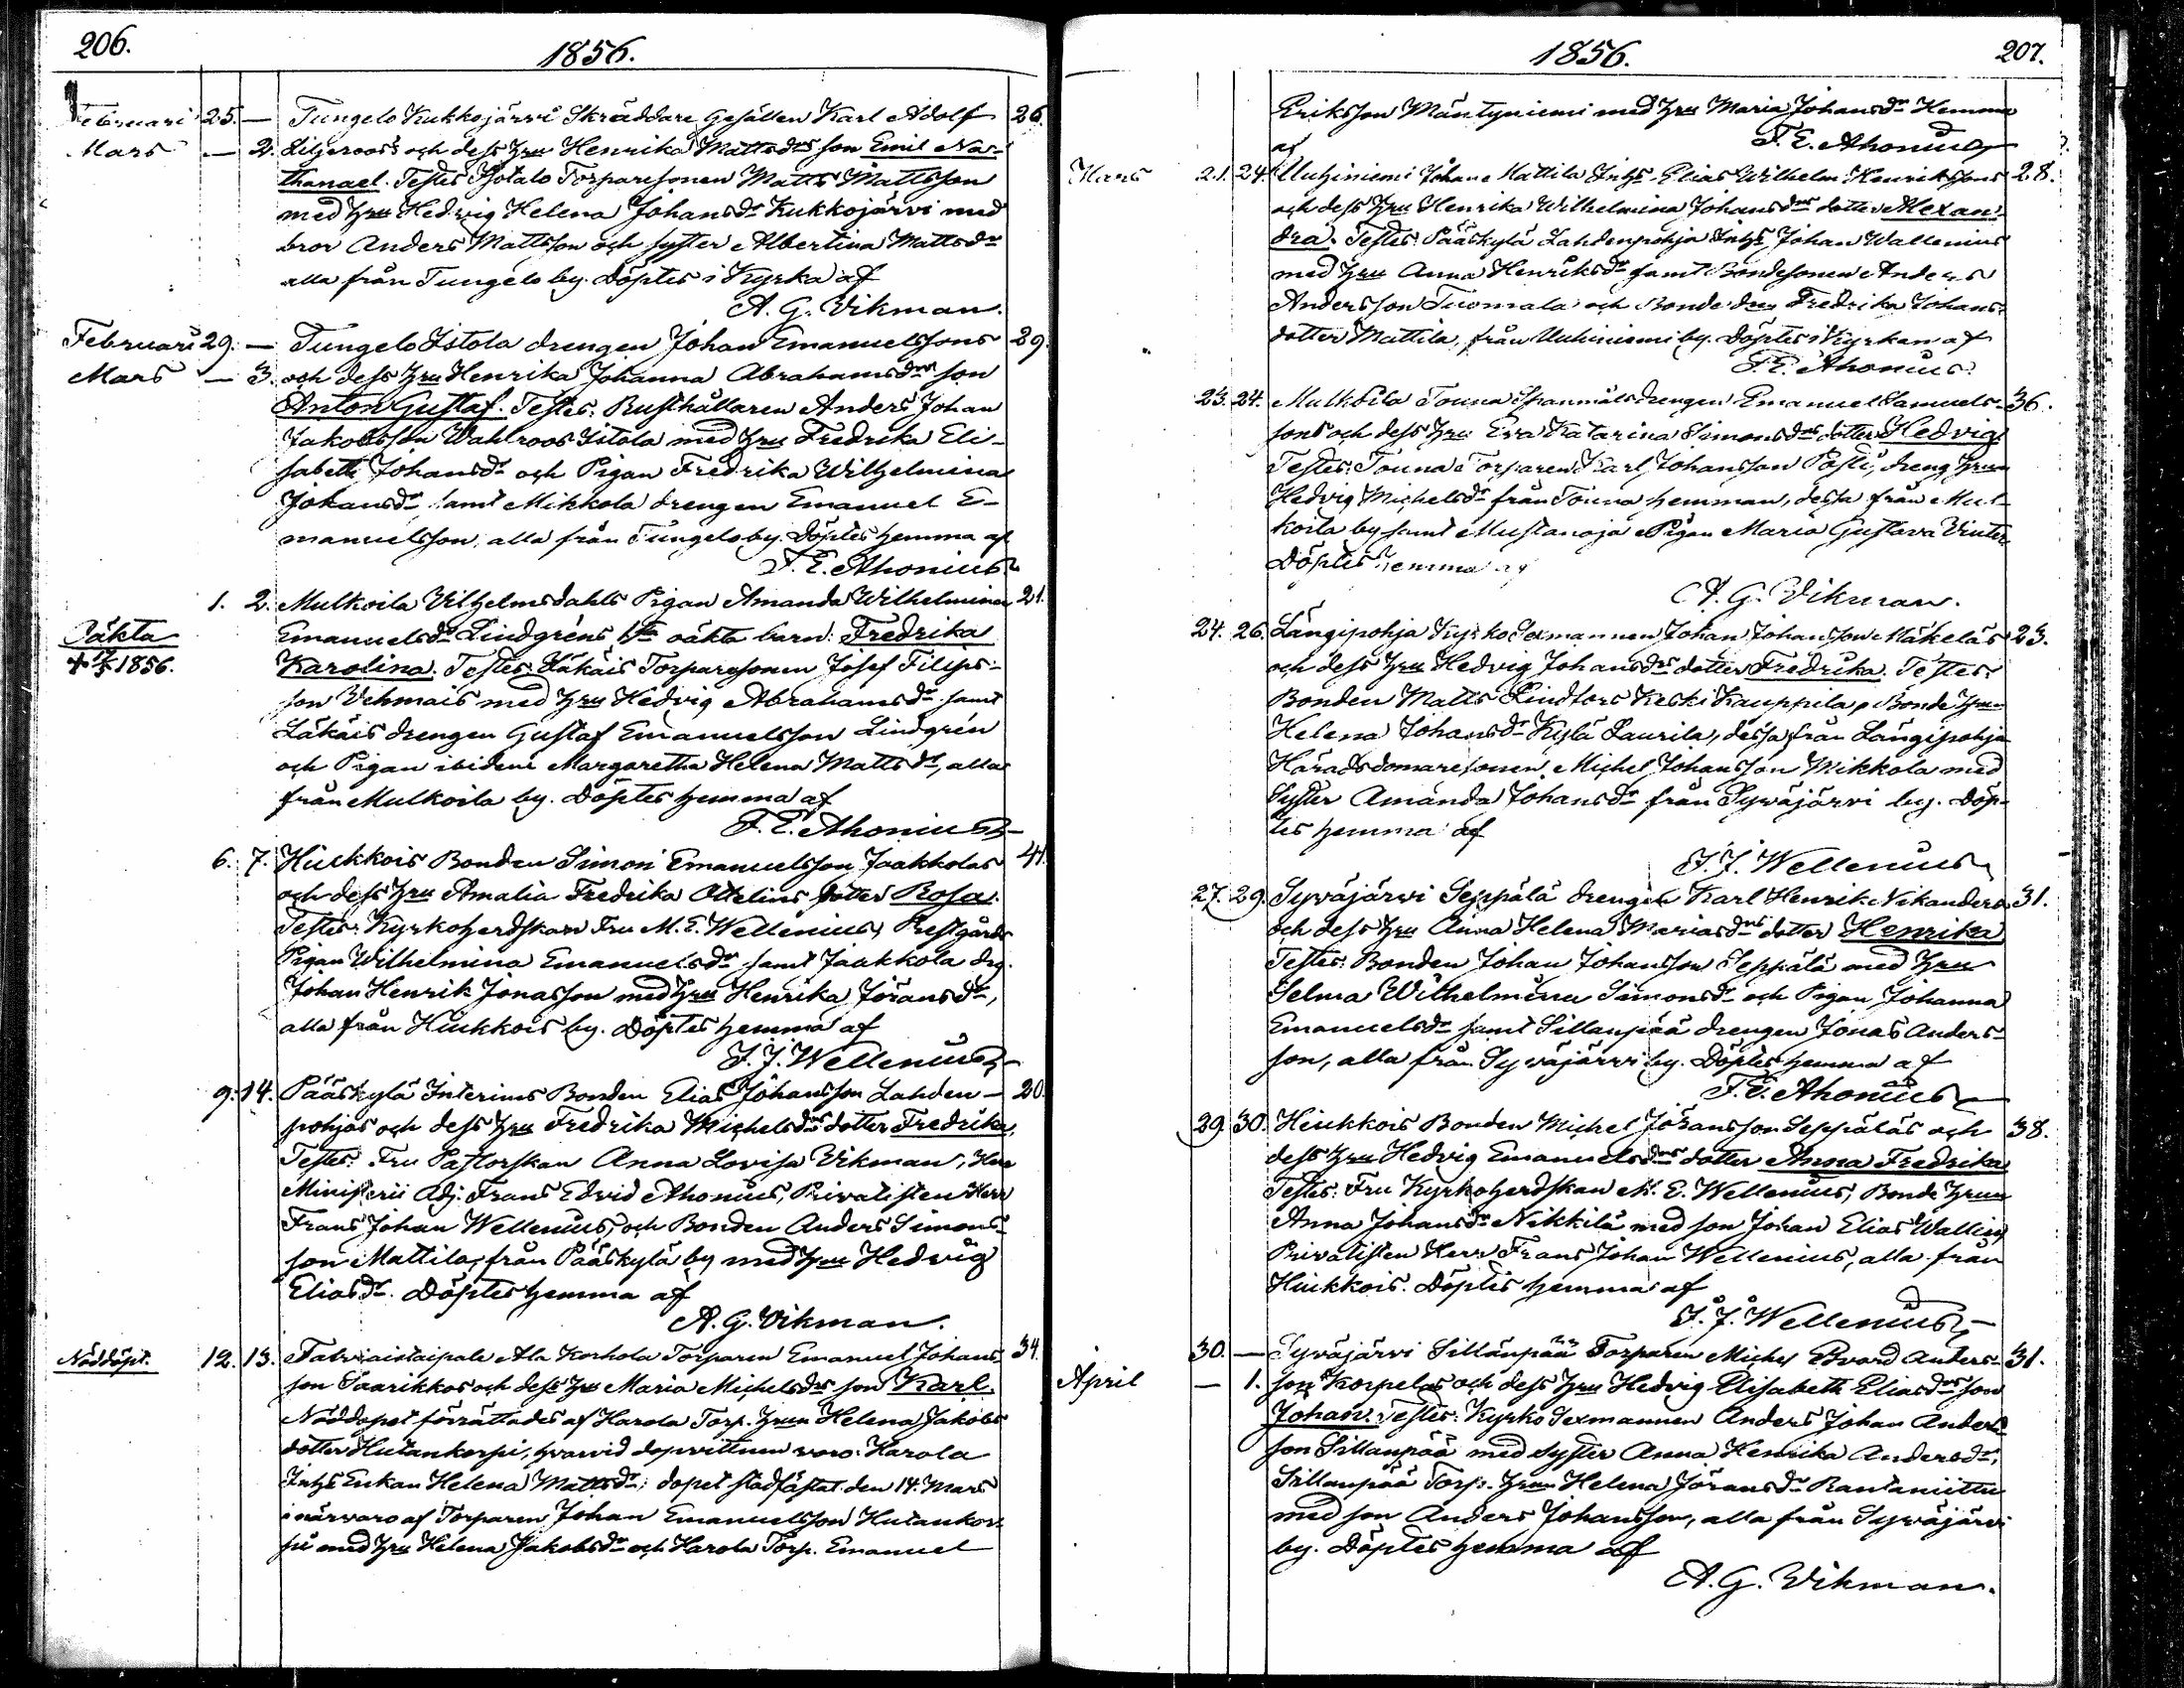 206.
1856.
Februari 25. — Tungelo Kukkojärvi Skräddare Gesällen Karl Adolf 26.
Mars — 2. Liljeroos's och dess hru Henrika Mattsdrs son Emil Na-
thanael. Testes Isotalo Torparesonen Matts Mattsson
med hru Hedvig Helena Johansdr Kukkojärvi med
bror Anders Mattsson och syster Albertina Mattsdr
alla från Tungelo by. Döptes i Kyrka af
A. G. Vikman.
Februari 29. — Tungelo Istola drengen Johan Emanuelssons 29.
Mars — 3. och dess hru Henrika Johanna Abrahamsdrs son
Anton Gustaf. Testes: Rusthållaren Anders Johan
Jakobsson Wahlroos Istola med hru Fredrika Eli-
sabeth Johansdr och Pigan Fredrika Wilhelmina
Johansdr samt Mikkola drengen Emanuel E-
manuelsson, alla från Tungelo by. Döptes hemma af
F. E. Ahonius
1. 2. Mulkoila Vilhelmsdahls Pigan Amanda Wilhelmina 21.
Oäkta Emanuelsdr Lindgréns 1sta oäkta barn: Fredrika
1856. Karolina. Testes: Läkäis Torparesonen Josef Filips-
son Vehmais med hru Hedvig Abrahamsdr samt
Läkäis drengen Gustaf Emanuelsson Lindgrén
och Pigan ibidem Margaretha Helena Mattsdr, alla
från Mulkoila by. Döptes hemma af
F. E. Ahonius
6. 7. Hiukkois Bonden Simon Emanuelsson Jaakkolas 41.
och dess hru Amalia Fredrika Ottelins dotter Rosa.
Testes: Kyrkoherdskan Fru M. E. Wellenius, Prestgårds
Pigan Wilhelmina Emanuelsdr samt Jaakkola drg.
Johan Henrik Jonasson med hru Henrika Göransdr,
alla från Hiukkois by. Döptes hemma af
F. J. Wellenius
9. 14. Pääskylä Interims Bonden Elias Johansson Lahden- 20.
pohjas och dess hru Fredrika Michelsdrs dotter Fredrika,
Testes: Fru Pastorskan Anna Lovisa Vikman, Herr
Ministerii Adj. Frans Edvid Ahonius, Privatisten Herr
Frans Johan Wellenius, och Bonden Anders Simons-
son Mattila, från Pääskylä by med hru Hedvig
Eliasdr. Döptes hemma af
A. G. Vikman.
Nöddöpt. 12. 13. Ala Korhola Torparen Emanuel Johans- 34.
son Saarikkos och dess hru Maria Michelsdrs son Karl.
Nöddopet förrättades af Harola Torp. hrun Helena Jakobs
dotter Hutankorpi, hvarvid dopvittnen voro: Harola
Inhs Enkan Helena Mattsdr; dopet stadfästat den 14. Mars
i närvaro af Torparen Johan Emanuelsson Hutankor-
pi med hru Helena Jakobsdr och Harola Torp. Emanuel
1856.
207.
Eriksson Mäntyniemi med hru Maria Johansdr Hemma
af F. E. Ahonius
Mars 21. 24. Uuhiniemi Johan Mattila Inhs Elias Wilhelm Henrikssons 28.
och dess hru Henrika Wilhelmina Johansdrs dotter Alexan-
dra. Testes: Pääskylä Lahdenpohja Inhs Johan Wallenius
med hru Anna Henriksdr samt Bondesonen Anders
Andersson Tuomala och Bonde dr Fredrika Johans-
dotter Mattila, från Uuhiniemi by. Döptes i Kyrkan af
F. E. Ahonius.
23. 24. Mulkoila Touna Spanmålsdrengen Emanuel Samuels- 36.
sons och dess hru Eva Katarina Simonsdrs dotter Hedvig
Testes: Touna Torparen Karl Johansson Posti, dreng hrun
Hedvig Michelsdr från Touna hemman, dessa från Mul-
koila by samt Mustanoja Pigan Maria Gustava Vinter.
Döptes hemma af
A. G. Vikman.
24. 26. Längipohja KyrkoSexmannen Johan Johansson Mäkeläs 23.
och dess hru Hedvig Johansdrs dotter Fredrika. Testes:
Bonden Matts Lindfors Keski Kauppila, Bonde hrun
Helena Johansdr Kylä Laurila, dessa från Längipohja
Häradsdomaresonen Michel Johansson Mikkola med
Syster Amanda Johansdr från Syväjärvi by. Döp-
tes hemma af
F. J. Wellenius
27. 29. Syväjärvi Seppälä drengen Karl Henrik Nikanders 31.
och dess hru Anna Helena Mariasdrs dotter Henrika
Testes: Bonden Johan Johansson Seppälä med hru
Selma Wilhelmina Simonsdr och Pigan Johanna
Emanuelsdr samt Sillanpää drengen Jonas Anders-
son, alla från Syväjärvi by. Döptes hemma af
F. E. Ahonius
29. 30. Hiukkois Bonden Michel Göransson Seppäläs och 38.
dess hru Hedvig Emanuelsdrs dotter Anna Fredrika
Testes: Fru Kyrkoherdskan M. E. Wellenius, Bonde hrun
Anna Johansdr Nikkilä med son Johan Elias Wallin,
Privatisten Herr Frans Johan Wellenius, alla från
Hiukkois. Döptes hemma af
F. J. Wellenius
30. — Syväjärvi Sillanpää Torparen Michel Edvard Anders- 31.
April — 1. son Korpelas och dess hru Hedvig Elisabeth Eliasdrs son
Johan. Testes: Kyrko Sexmannen Anders Johan Anders-
son Sillanpää med syster Anna Henrika Andersdr,
Sillanpää Torp. hrun Helena Göransdr Rantaniittu
med son Anders Johansson, alla från Syväjärvi
by. Döptes hemma af
A. G. Vikman.